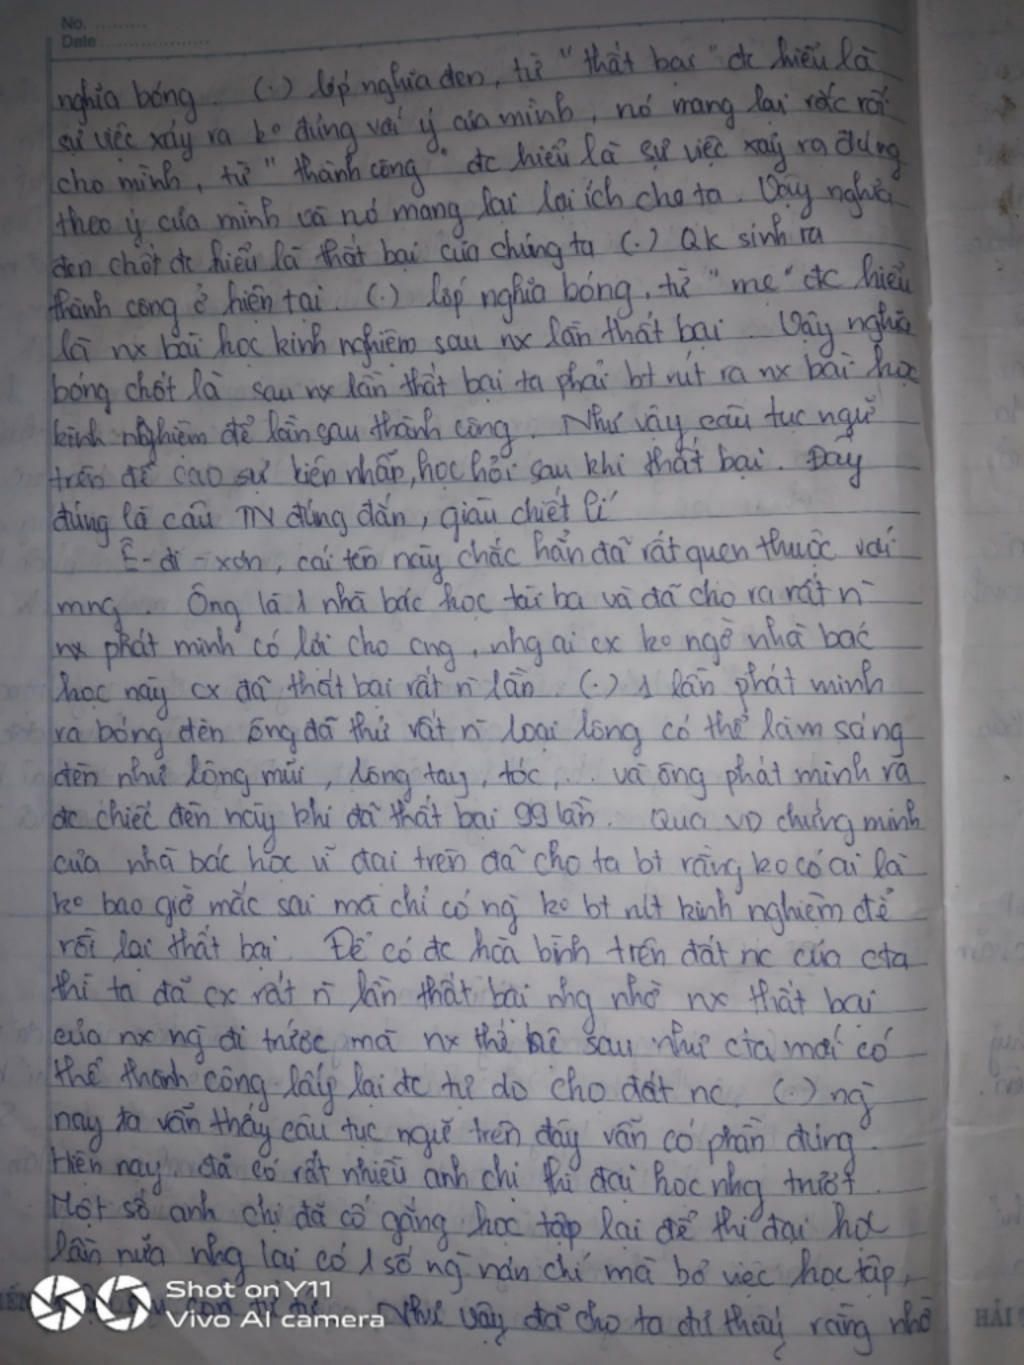 No. ..........
Date ....................
nghĩa bóng. (.) lớp nghĩa đen, từ "thất bại" đc hiểu là
sự việc xảy ra ko đúng với ý của mình, nó mang lại rắc rối
cho mình, từ "thành công" đc hiểu là sự việc xảy ra đúng
theo ý của mình và nó mang lại lợi ích cho ta. Vậy nghĩa
đen chốt đc hiểu là thất bại của chúng ta (.) QK sinh ra
thành công ở hiện tại. (.) lớp nghĩa bóng, từ "mẹ" đc hiểu
là nx bài học kinh nghiệm sau nx lần thất bại. Vậy nghĩa
bóng chốt là sau nx lần thất bại ta phải bt rút ra nx bài học
kinh nghiệm để lần sau thành công. Như vậy câu tục ngữ
trên đề cao sự kiên nhấp, học hỏi sau khi thất bại. Đây
đúng là câu TN đúng đắn, giàu chiết lí
Ê-đi-xơn, cái tên này chắc hẳn đã rất quen thuộc với
mng. Ông là 1 nhà bác học tài ba và đã cho ra rất n`
nx phát minh có lợi cho cng, nhg ai cx ko ngờ nhà bác
học này cx đã thất bại rất n` lần. (.) 1 lần phát minh
ra bóng đèn ông đã thử rất n` loại lông có thể làm sáng
đèn như lông mũi, lông tay, tóc,... và ông phát minh ra
đc chiếc đèn này khi đã thất bại 99 lần. Qua VD chứng minh
của nhà bác học vĩ đại trên đã cho ta bt rằng ko có ai là
ko bao giờ mắc sai mà chỉ có ng` ko bt rút kinh nghiệm để
rồi lại thất bại. Để có đc hoà bình trên đất nc của cta
thì ta đã cx rất n` lần thất bại nhg nhờ nx thất bại
của nx ng` đi trước mà nx thế hệ sau như cta mới có
thể thành công lấy lại đc tự do cho đất nc. (.) ng`
nay ta vẫn thấy câu tục ngữ trên đây vẫn có phần đúng.
Hiện nay, đã có rất nhiều anh chị thi đại học nhg trượt.
Một số anh chị đã cố gắng học tập lại để thi đại học
lần nữa nhg lại có 1 số ng` nản chí mà bỏ việc học tập,
Như vậy đã cho ta dư thấy rằng nhờ
Shot on Y11
Vivo AI camera